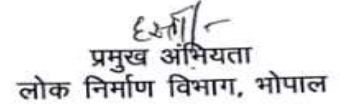 हस्ता/-
प्रमुख अभियता
लोक निर्माण विभाग, भोपाल